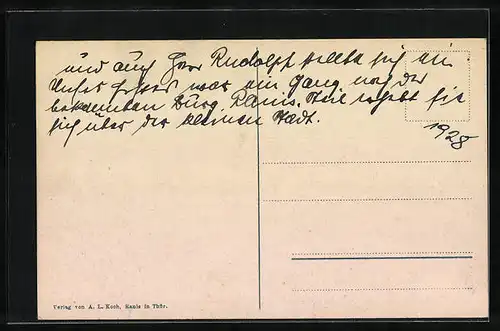 und auch Herr Rudolph stellte sich ein
Unser war ein Gang nach der
bekannten Burg Ranis. Steil erhebt sie
sich über der kleinen Stadt.
1928
Verlag von A. L. Koch, Ranis in Thür.